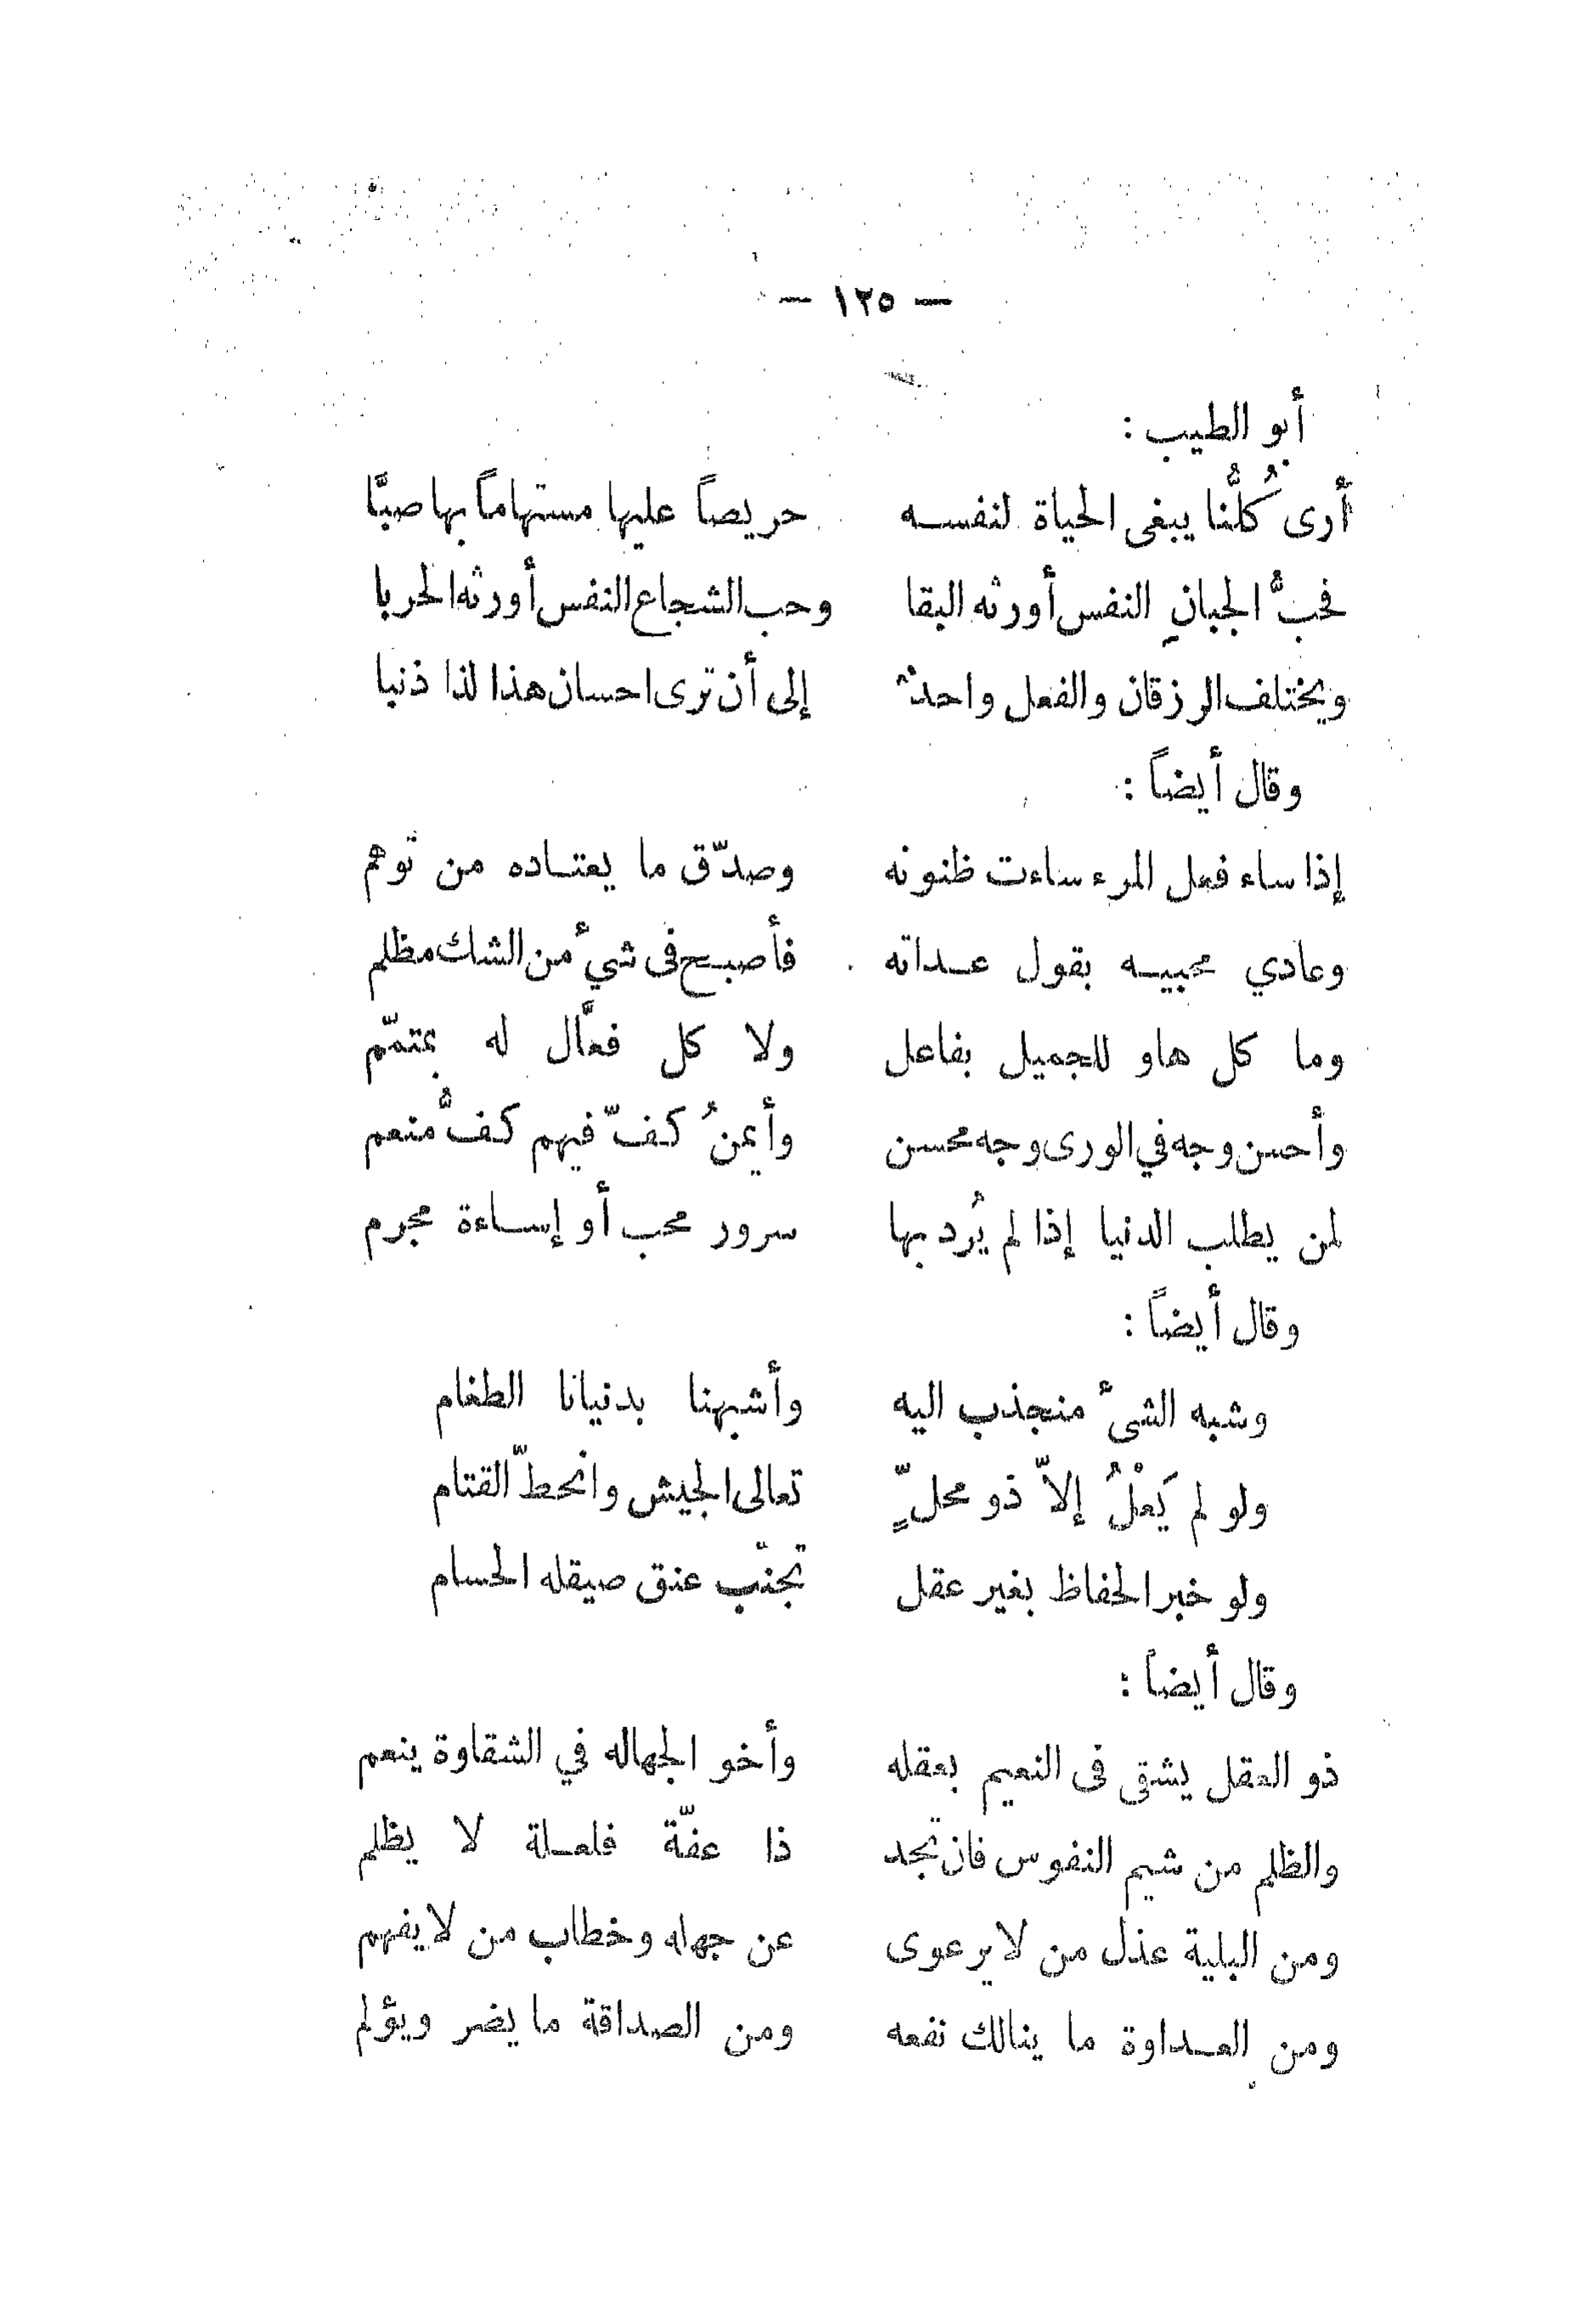 — ١٢٥ —
أبو الطيب :
أرى كُلُّنا يبغى الحياة لنفسه حريصاً عليها مستهاماً بها صبًّا
فحبُّ الجبانِ النفس أورثه البقا وحب الشجاع النفس أورثه الحربا
ويختلف الرزقان والفعل واحد إلى أن ترى احسان هذا لذا ذنبا
وقال أيضاً :
إذا ساء فعل المرء ساءت ظنونه وصدّق ما يعتاده من توهم
وعادي محبيه بقول عداته فأصبح فى شيء من الشك مظلم
وما كل هاو للجميل بفاعل ولا كل فعَّال له بمتمّم
وأحسن وجه في الورى وجه محسن وأيمنُ كفّ فيهم كفُّ منعم
لمن يطلب الدنيا إذا لم يُرد بها سرور محب أو إساءة مجرم
وقال أيضاً :
وشبه الشىء منجذب اليه وأشبهنا بدنيانا الطغام
ولو لم يَعْلُ إلاّ ذو محلّ تعالى الجيش وانحطّ القتام
ولو خبر الحفاظ بغير عقل تجنّب عنق صيقله الحسام
وقال أيضاً :
ذو العقل يشقى فى النعيم بعقله وأخو الجهاله في الشقاوة ينعم
والظلم من شيم النفوس فان تجد ذا عفّة فلعلة لا يظلم
ومن البلية عذل من لا يرعوى عن جهله وخطاب من لا يفهم
ومن العداوة ما ينالك نفعه ومن الصداقة ما يضر ويؤلم